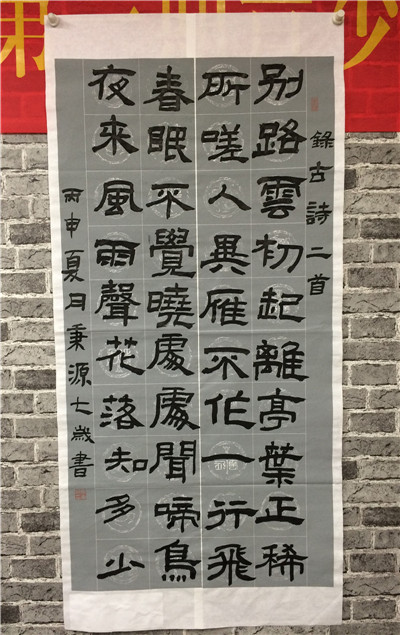 錄古詩二首
別路雲初起離亭葉正稀
所嗟人異雁不作一行飛
春眠不覺曉處處聞啼鳥
夜來風雨聲花落知多少
丙申夏日秉源七歲書